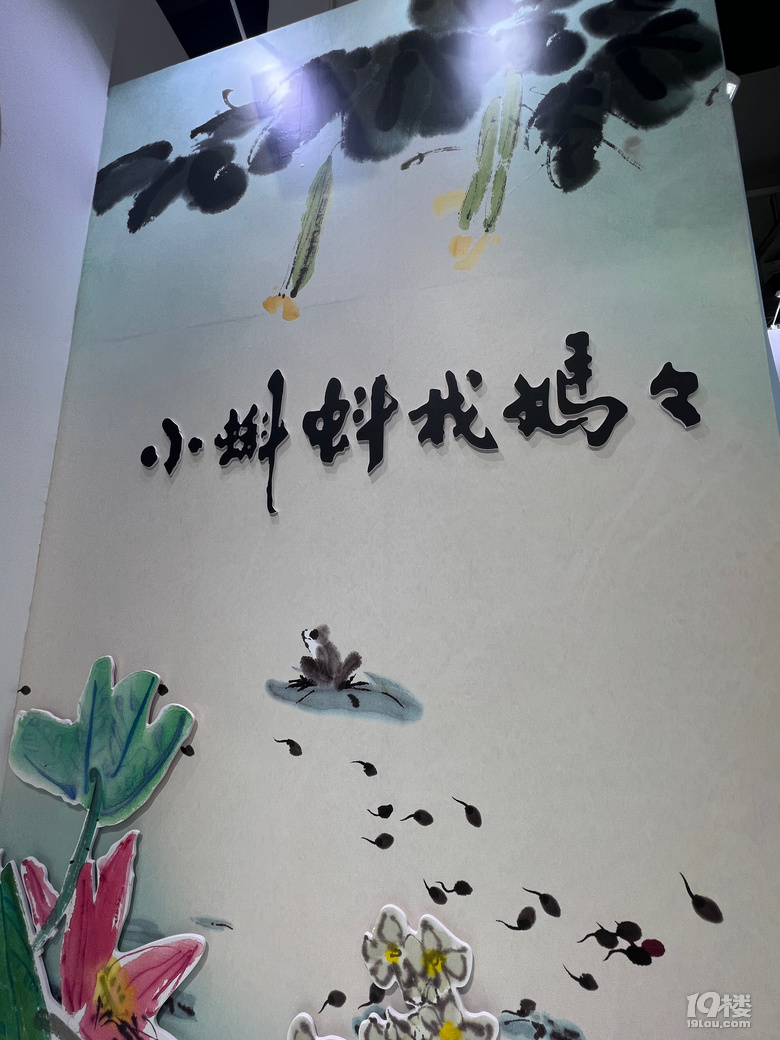 小蝌蚪找媽々
19楼
19lou.com